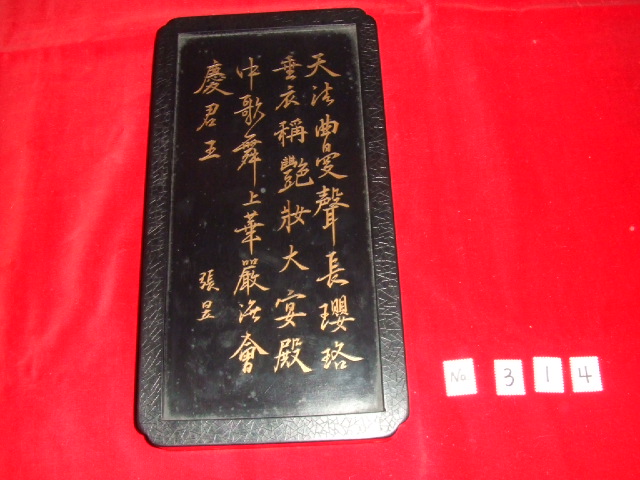 天法曲曼聲長瓔珞
垂衣稱艷妝大宴殿
中歌舞上華嚴法會
慶君王
張昱
No 3 1 4